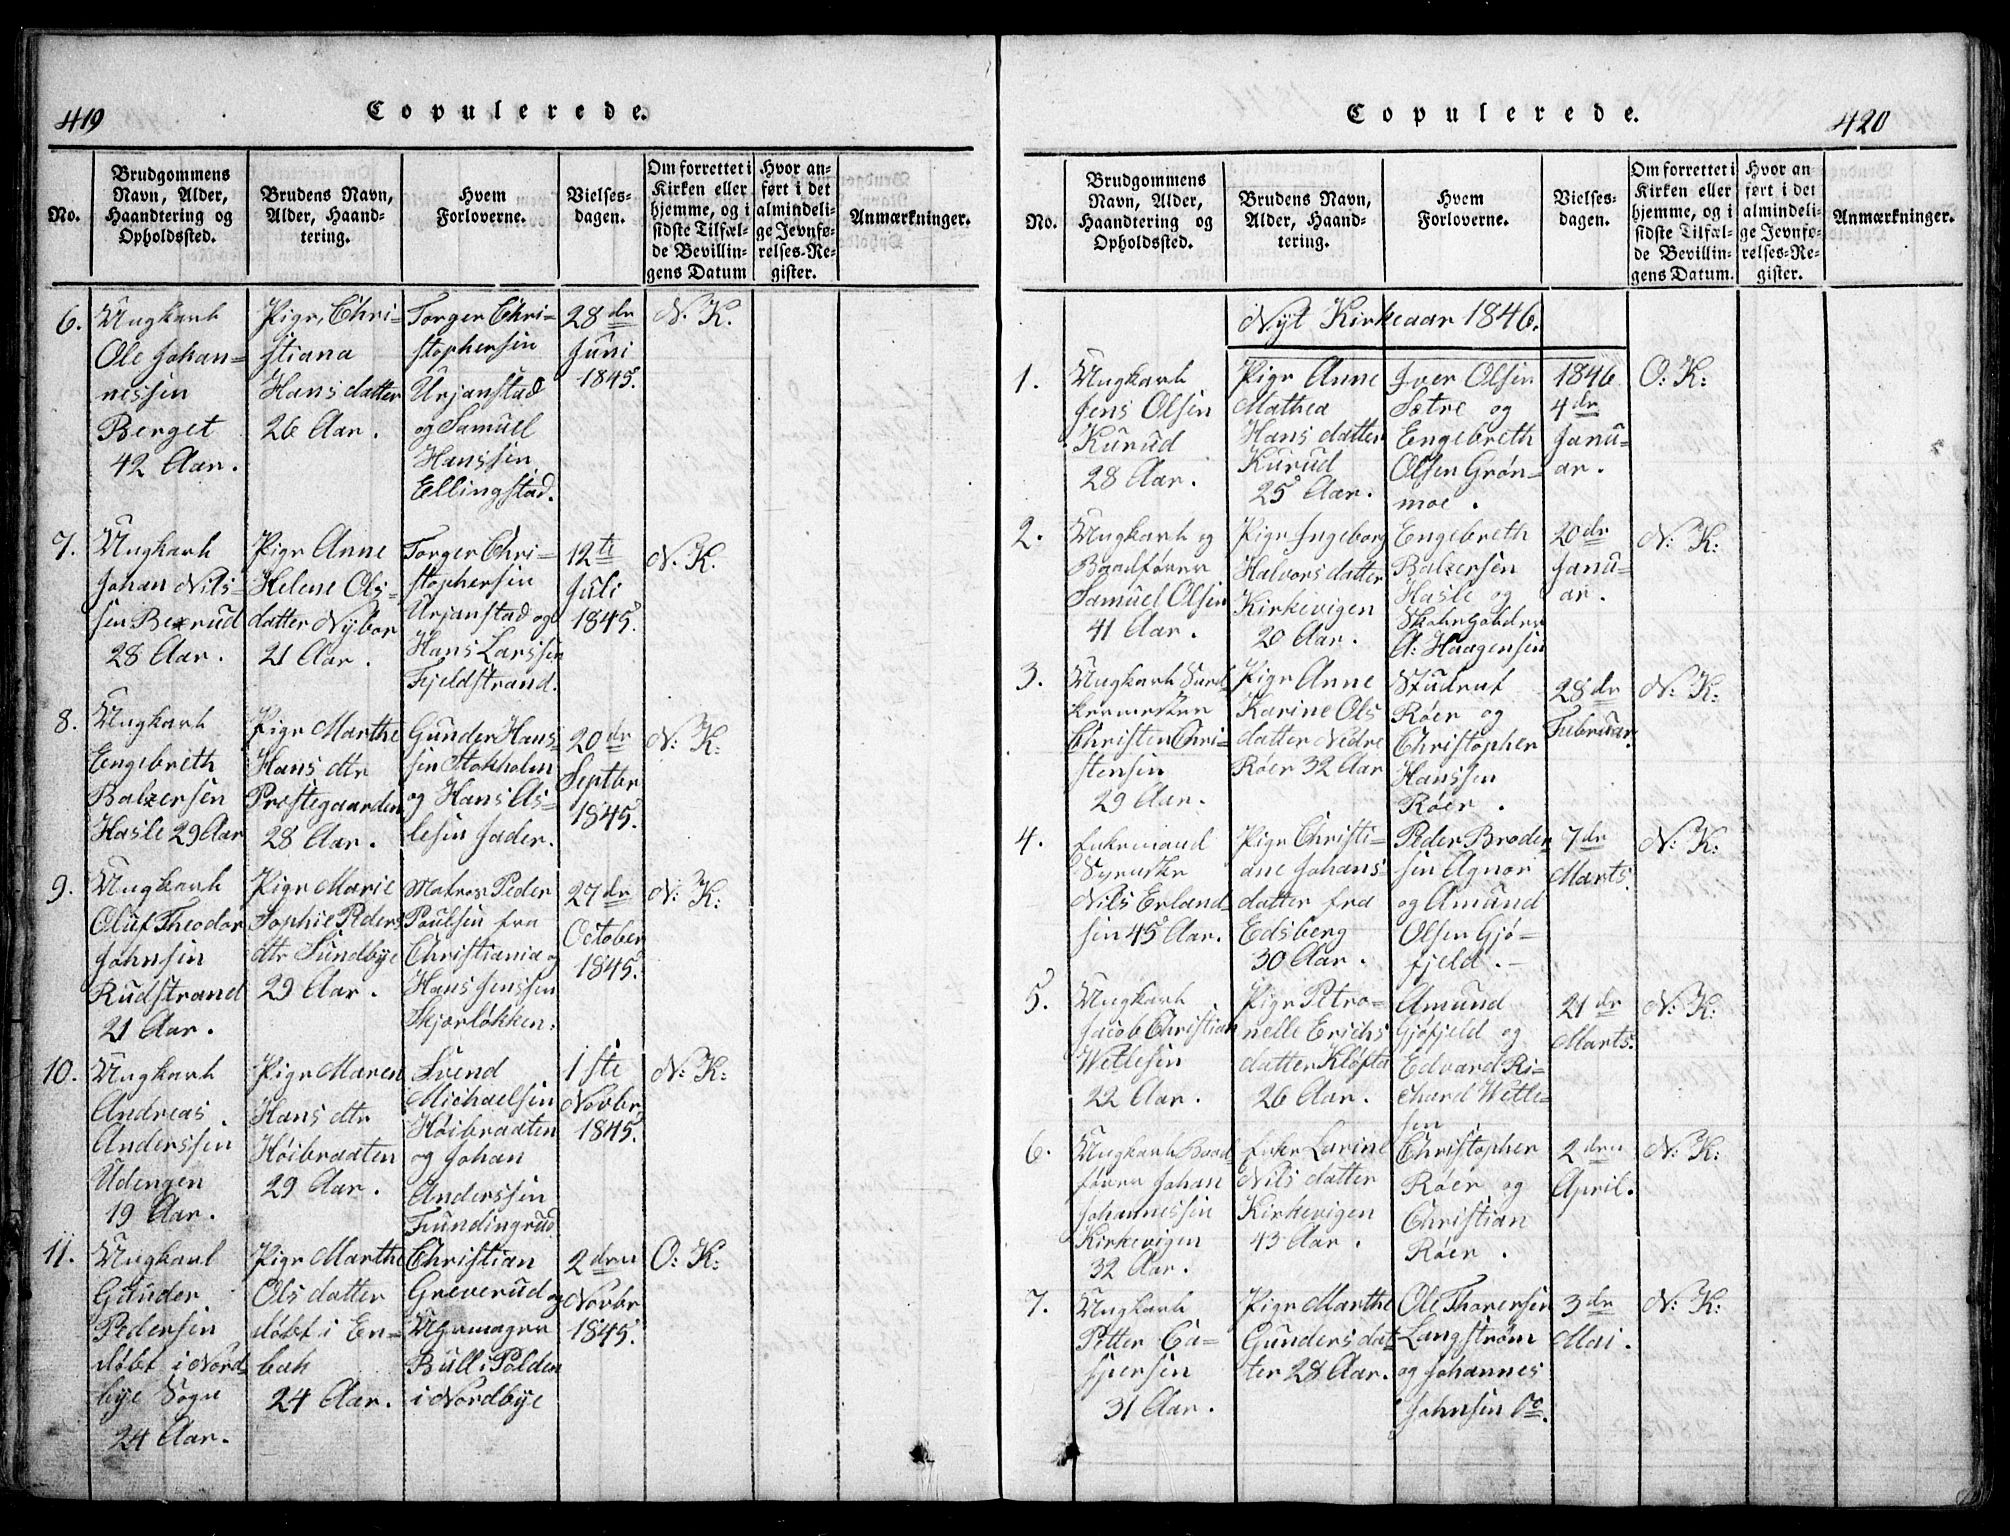 419
Copulerede.
No.
Brudgommens
Navn, Alder,
Haandtering og
Opholdssted.
Brudens Navn,
Alder, Haand-
tering.
Hvem
Forloverne.
Vielses-
dagen.
Om forrettet i
Kirken eller
hjemme, og i
sidste Tilfæl-
de Bevillin-
gens Datum
Hvor an-
ført i det
almindeli-
ge Jevnfø-
relses-Re-
gister.
Anmærkninger.
6.
Ungkarl
Ole Johan-
nessen
Berget
42 Aar.
Pige, Chri-
stiana
Hansdatter
26 Aar.
Torger Chri-
stophersen
Urjanstad
og Samuel
Hanssen
Ellingstad.
28de
Juni
1845.
N. K.
7.
Ungkarl
Johan Nils-
sen Bexrud
28 Aar.
Pige Anne
Helene Ols-
datter Nÿbor
21 Aar.
Torger Chri-
stophersen
Urjanstad og
Hans Larssen
Fjeldstrand.
12te
Juli
1845.
N. K.
8.
Ungkarl
Engebreth
Balzersen
Hasle 29 Aar
Pige Marthe
Hans dtr
Præstegaarden
28 Aar.
Gunder Hans-
sen Stokholm
og Hans As-
lesen Jader.
20de
Septbr
1845.
N: K:
9.
Ungkarl
Oluf Theodor
Johnsen
Rudstrand
21 Aar.
Pige Marie
Sophie Peders
dtr Sundbÿe
29 Aar.
Matros Peder
Poulsen fra
Christiania og
Hans Jenssen
Skjærløkken:
27de
October
1845.
N: K:
10.
Ungkarl
Andreas
Anderssen
Udengen
19 Aar.
Pige Maren
Hans dtr
Høibraaten
29 Aar.
Svend
Michaelsen
Høibraaten
og Johan
Anderssen
Fundingrud
1ste
Novbr,
1845.
N: K:
11.
Ungkarl
Gunder
Pedersen
døbt i Nord-
bÿe Sogn
24 Aar.
Pige Marthe
Ols datter
døbt i En-
bak
24 Aar.
Christian
Greverud og
Uhrmager
Bull i Polden
i Nordbÿe
2den
Novbr
1845.
O: K:
420
Copulerede.
No.
Brudgommens
Navn, Alder,
Haandtering og
Opholdssted.
Brudens Navn,
Alder, Haand-
tering.
Hvem
Forloverne.
Vielses-
dagen.
Om forrettet i
Kirken eller
hjemme, og i
sidste Tilfæl-
de Bevillin-
gens Datum.
Hvor an
ført i det
almindeli-
ge Jevnfø-
relses-Re-
gister.
Anmærkninger.
Nÿt Kirkeaar 1846.
1.
Ungkarl
Jens Olsen
Kurud
28 Aar.
Pige Anne
Mathea
Hans datter
Kurud
25 Aar.
Iver Olsen
Sætre og
Engebreth
Olsen Grøn-
moe.
1846
4de
Janu-
ar.
O: K:
2.
Ungkarl og
Baadfører
Samuel Olsen
41 Aar.
Pige Ingeborg
Halvors datter
Kirkevigen
20 Aar.
Engebreth
Balzersen
Hasle og
Skoleholder
A: Haagensen
20de
Janu-
ar.
N: K:
3.
Ungkarl
Christen Chri-
stensen
29 Aar.
Pige Anne
Karine Ols
datter Nedre
Røer 32 Aar
Røer og
Christopher
Hanssen
Røer.
28de
Februar.
N: K:
4.
Enkemand
Nils Erland-
sen 45 Aar.
Pige Christi-
ane Johans
datter fra
Edsberg
30 Aar.
Peder Broder-
sen Agnor
og Amund
Olsen Gjø-
fjeld.
7de
Marts.
N: K:
5.
Ungkarl
Jacob Christian
Wetlesen
22 Aar.
Pige Petro-
nelle Erichs
datter Kløfta
26 Aar.
Amund
Gjøfjeld og
Edvard Ri-
chard Wetle-
sen
21de
Marts.
N: K:
6.
Ungkarl Baad-
fører Johan
Johannessen
Kirkevigen
32 Aar.
Enke Larine
Nils datter
Kirkevigen
43 Aar.
Christopher
Røer og
Christian
Røer.
2den
April.
N: K:
7.
Ungkarl
Petter Ca-
spersen
31 Aar.
Pige Marthe
Gunders dat-
ter 28 Aar.
Ole Thoresen
Langstrøm
og Johannes
Johnsen Do.
3de
Mai.
N: K: